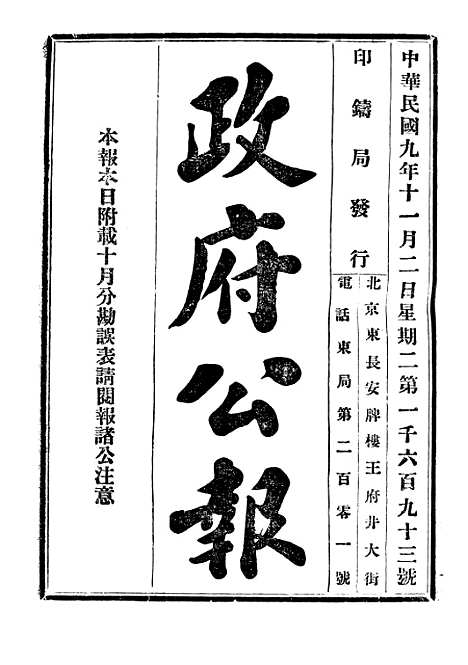 中華民國九年十一月二日星期二第一千六百九十三號
印鑄局發行
北京東長安牌樓王府井大街
電話東局第二百零一號
政府公報
本報本日附載十月分勘誤表請閱報諸公注意